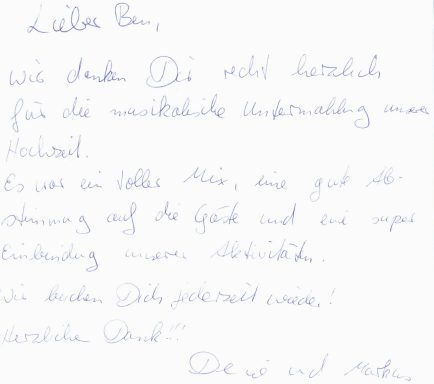 Lieber Ben,
wir danken Dir recht herzlich
für die musikalische Untermahlung unserer
Hochzeit.
Es war ein toller Mix, eine gute Ab-
stimmung auf die Gäste und eine super
Einbindung unserer Aktivitäten.
Wir buchen Dich jederzeit wieder!
Herzlichen Dank!!!
und Markus